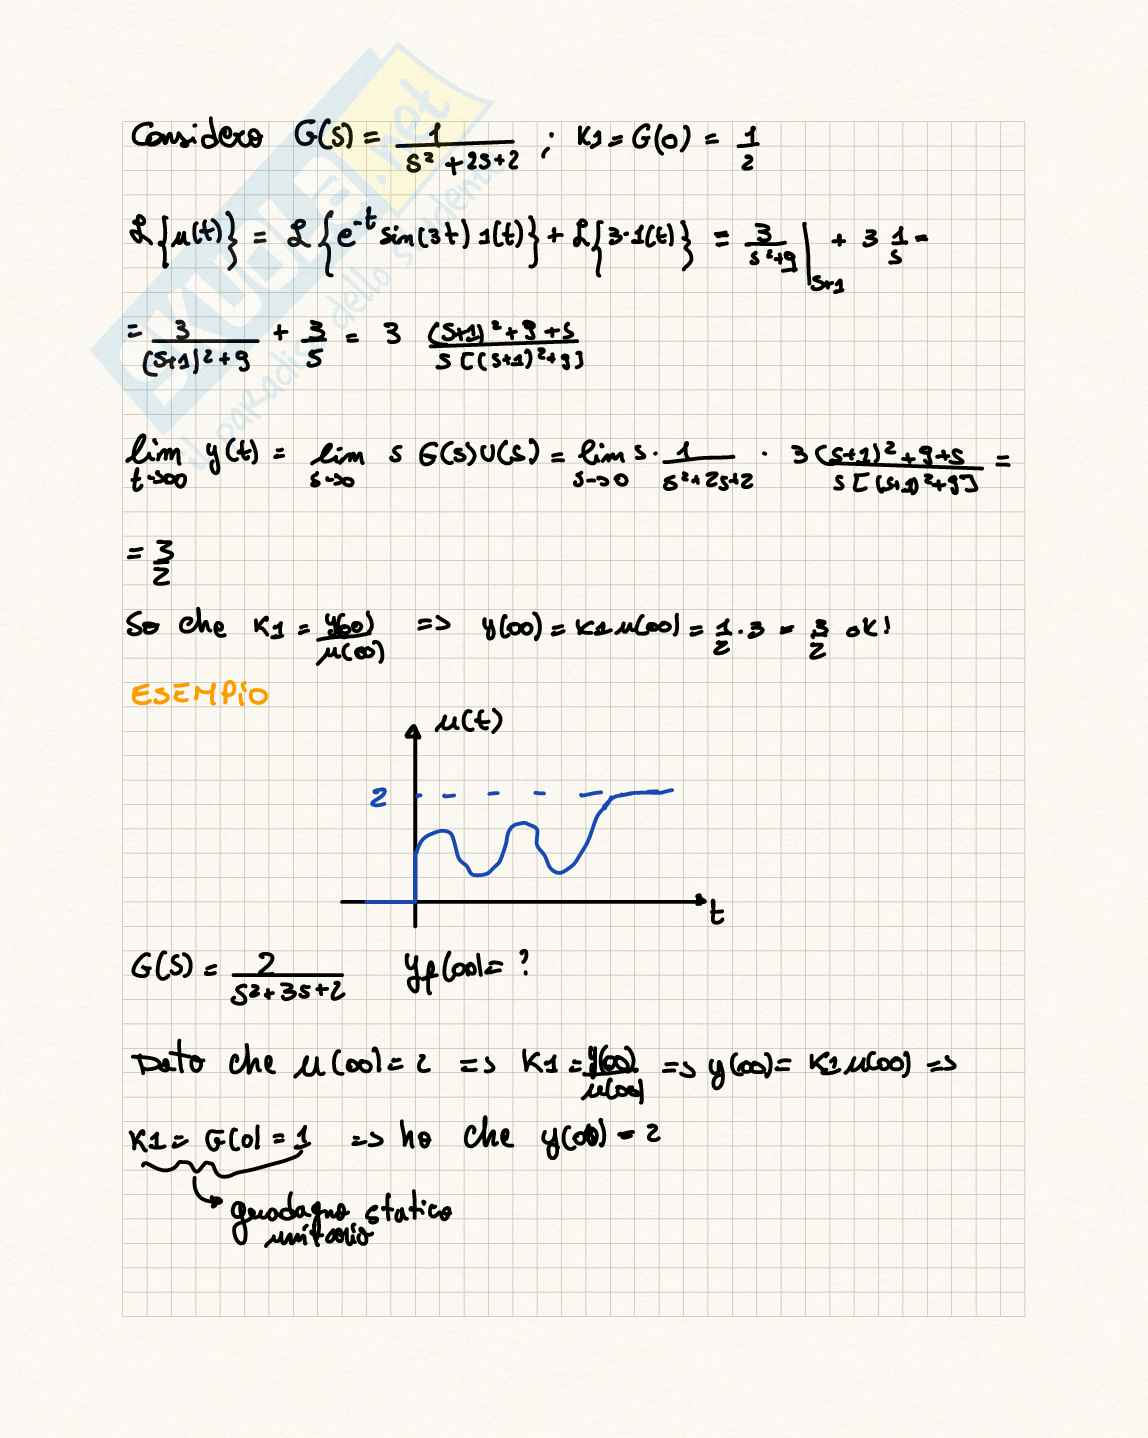 Considero G(s) = 1/(s² + 2s + 2) ; K1 = G(0) = 1/2
ℒ{u(t)} = ℒ{e^-t sin(3t) 1(t)} + ℒ{3·1(t)} = 3/(s²+9)|s+1 + 3 1/s =
= 3/((s+1)²+9) + 3/s = 3 ((s+1)²+9+s)/(s[(s+1)²+9])
lim t→∞ y(t) = lim s→0 s G(s)U(s) = lim s→0 s · 1/(s²+2s+2) · 3 ((s+1)²+9+s)/(s[(s+1)²+9]) =
= 3/2
So che K1 = y(∞)/u(∞) => y(∞) = K1 u(∞) = 1/2 · 3 = 3/2 ok!
ESEMPIO
u(t)
2
t
G(s) = 2/(s²+3s+2) yf(∞) = ?
Dato che u(∞) = 2 => K1 = y(∞)/u(∞) => y(∞) = K1 u(∞) =>
K1 = G(0) = 1 => ho che y(∞) = 2
guadagno statico
unitario
SKUOLA.net
il paradiso dello studente